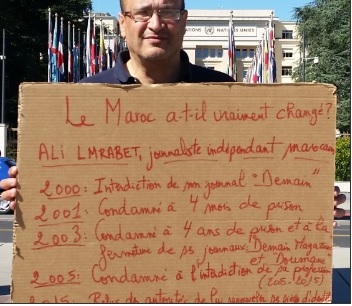 NATIONS UNIES
UNITED NATIONS
Le Maroc a-t-il vraiment changé?
ALI LMRABET, journaliste indépendant marocain
2000: Interdiction de mon journal "Demain"
2001: Condamné à 4 mois de prison
2003: Condamné à 4 ans de prison et à la
fermeture de ses journaux: Demain Magazine
et "Douman"
2005: Condamné à l'interdiction de sa profession
(2005-2015)
2015: Refus des autorités de lui